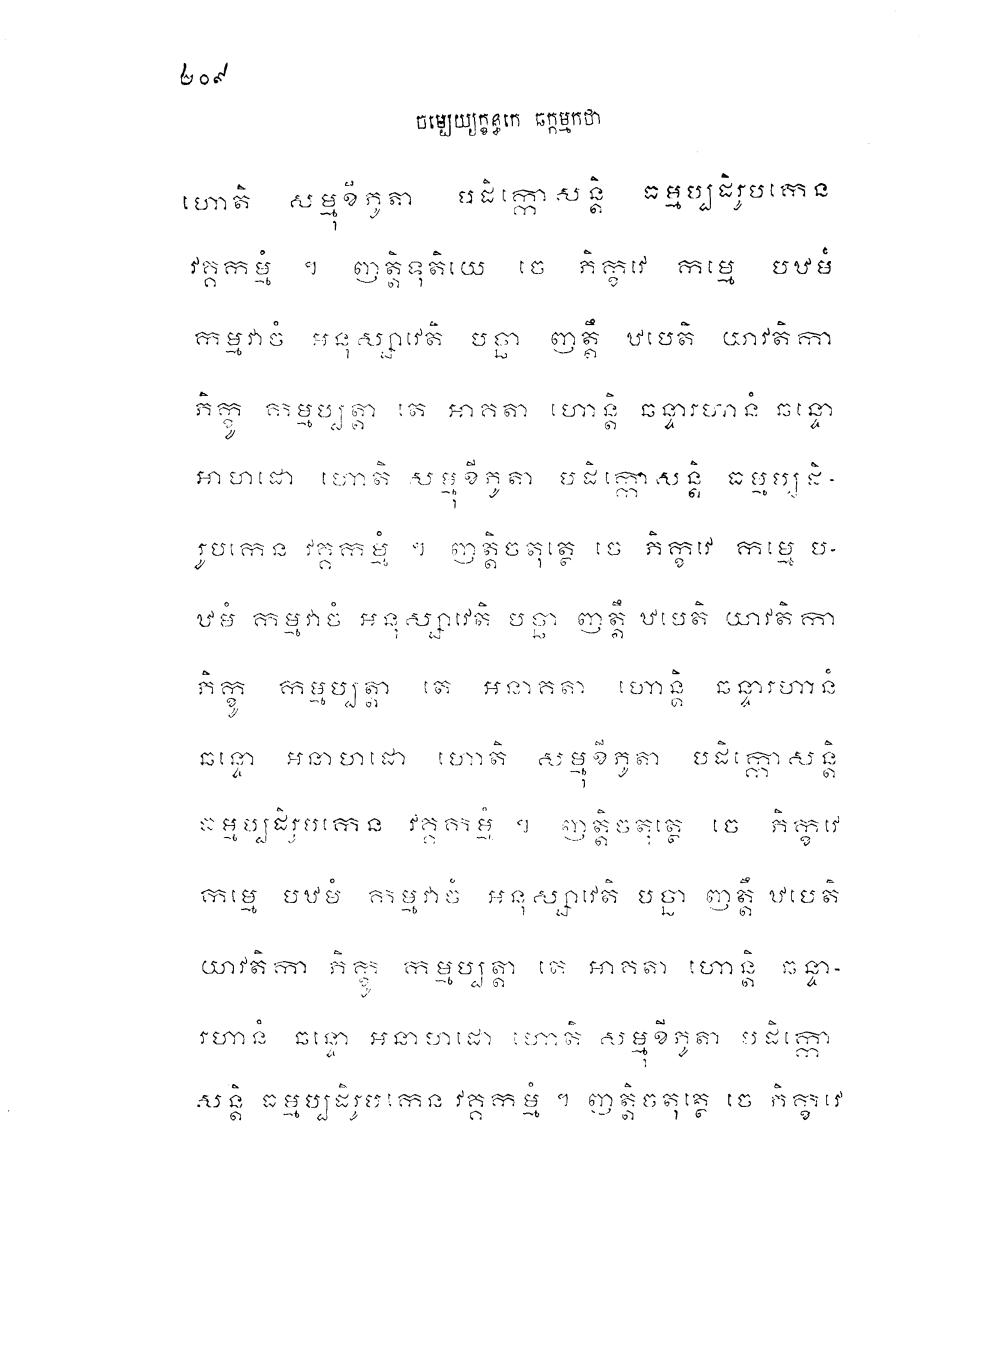 ២០៩
ចម្បេយ្យក្ខន្ធកេ ឆក្កម្មកថា
ហោតិ សម្មុខីភូតា បដិក្កោសន្តិ ធម្មប្បដិរូបកេន
វគ្គកម្មំ ។ ញត្តិទុតិយេ ចេ ភិក្ខវេ កម្មេ បឋមំ
កម្មវាចំ អនុស្សាវេតិ បច្ឆា ញត្តឹ ឋបេតិ យាវតិកា
ភិក្ខូ កម្មប្បត្តា តេ អាគតា ហោន្តិ ឆន្ទារហានំ ឆន្ទោ
អាហដោ ហោតិ សម្មុខីភូតា បដិក្កោសន្តិ ធម្មប្បដិ-
រូបកេន វគ្គកម្មំ ។ ញត្តិចតុត្ថេ ចេ ភិក្ខវេ កម្មេ ប-
ឋមំ កម្មវាចំ អនុស្សាវេតិ បច្ឆា ញត្តឹ ឋបេតិ យាវតិកា
ភិក្ខូ កម្មប្បត្តា តេ អនាគតា ហោន្តិ ឆន្ទារហានំ
ឆន្ទោ អនាហដោ ហោតិ សម្មុខីភូតា បដិក្កោសន្តិ
ធម្មប្បដិរូបកេន វគ្គកម្មំ ។ ញត្តិចតុត្ថេ ចេ ភិក្ខវេ
កម្មេ បឋមំ កម្មវាចំ អនុស្សាវេតិ បច្ឆា ញត្តឹ ឋបេតិ
យាវតិកា ភិក្ខូ កម្មប្បត្តា តេ អាគតា ហោន្តិ ឆន្ទា-
រហានំ ឆន្ទោ អនាហដោ ហោតិ សម្មុខីភូតា បដិក្កោ
សន្តិ ធម្មប្បដិរូបកេន វគ្គកម្មំ ។ ញត្តិចតុត្ថេ ចេ ភិក្ខវេ